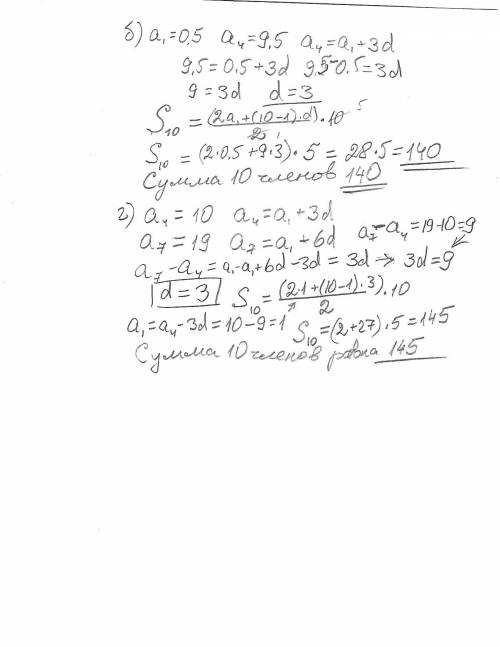 б) a₁=0,5 a₄=9,5 a₄=a₁+3d
9,5=0,5+3d 9,5-0,5=3d
9=3d d=3
S₁₀=(2a₁+(10-1)·d)·10 5
2 1
S₁₀=(2·0,5+9·3)·5=28·5=140
Сумма 10 членов 140
г) a₄=10 a₄=a₁+3d
a₇=19 a₇=a₁+6d a₇-a₄=19-10=9
a₇-a₄=a₁-a₁+6d-3d=3d→3d=9
d=3 S₁₀=(2·1+(10-1)·3)·10
2
a₁=a₄-3d=10-9=1 S₁₀=(2+27)·5=145
Сумма 10 членов равна 145